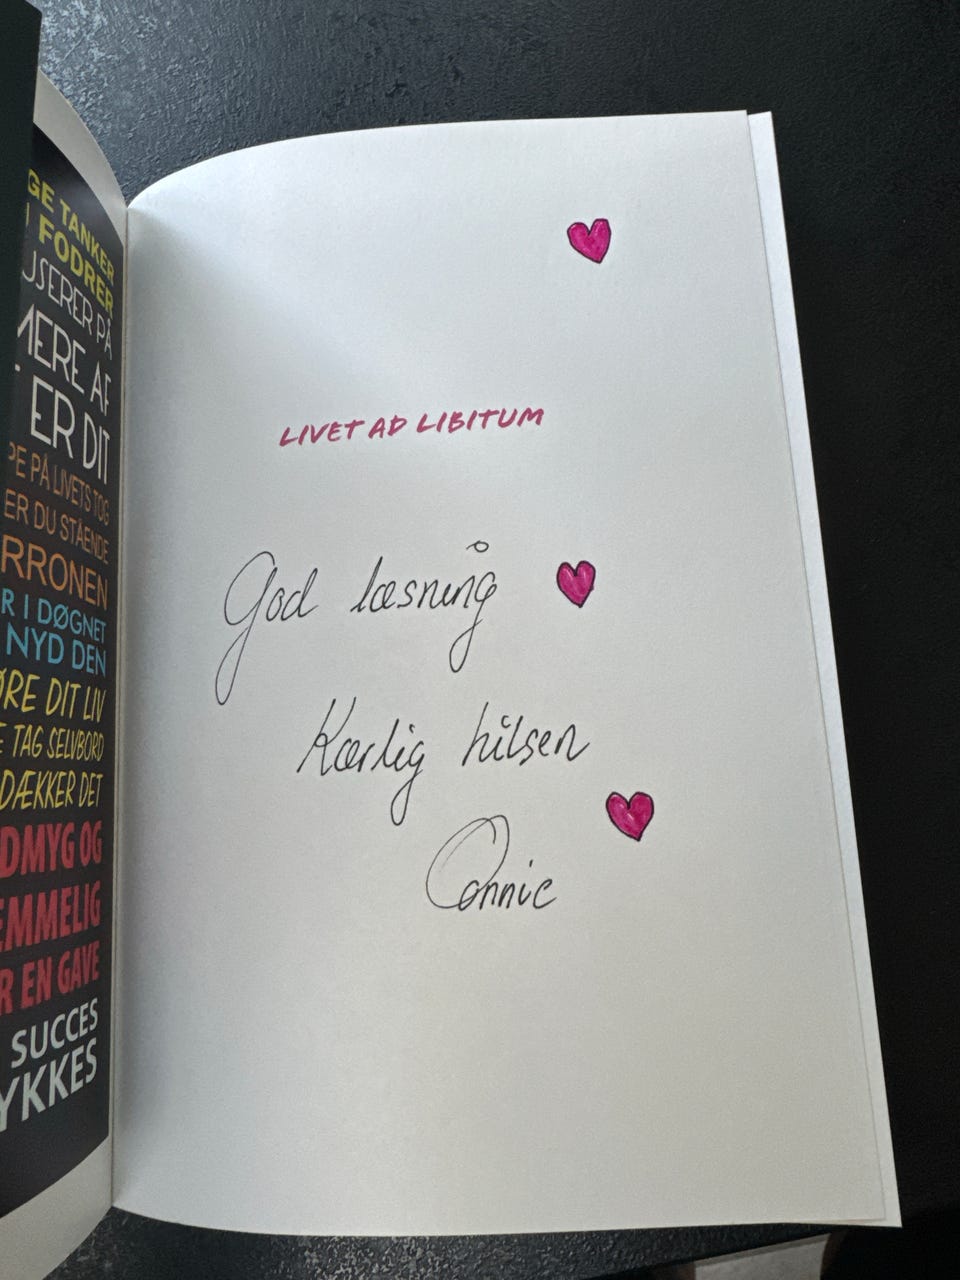 GE TANKER
FODRER
USERER PÅ
MERE AF
ER DIT
PE PÅ LIVETS TOG
ER DU STÅENDE
RRONEN
R I DØGNET
NYD DEN
ØRE DIT LIV
E TAG SELVBORD
DÆKKER DET
DMYG OG
EMMELIG
R EN GAVE
SUCCES
YKKES
LIVET AD LIBITUM
God læsning
Kærlig hilsen
Connie